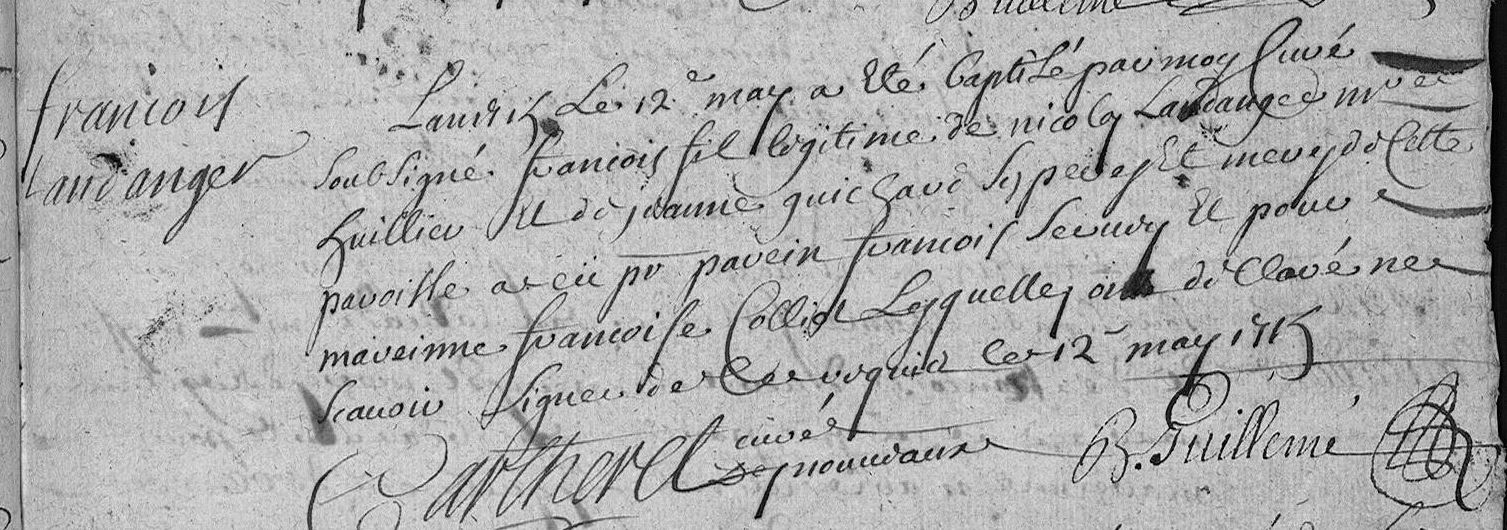 B Guillemé
francois
Landanger
Lan 1715 Le 12e may a Eté baptisé par moy Curé
soubsigné francois fil legitime de nicolas Landanger
huillier Et de jeanne guichard ses peres Et meres de Cette
paroisse a eü pr parein francois Et pour
mareinne francoise Colliot Lesquelles ont declaré ne
scauoir signer de ce requis le 12e may 1715
curé
B. Guillemé